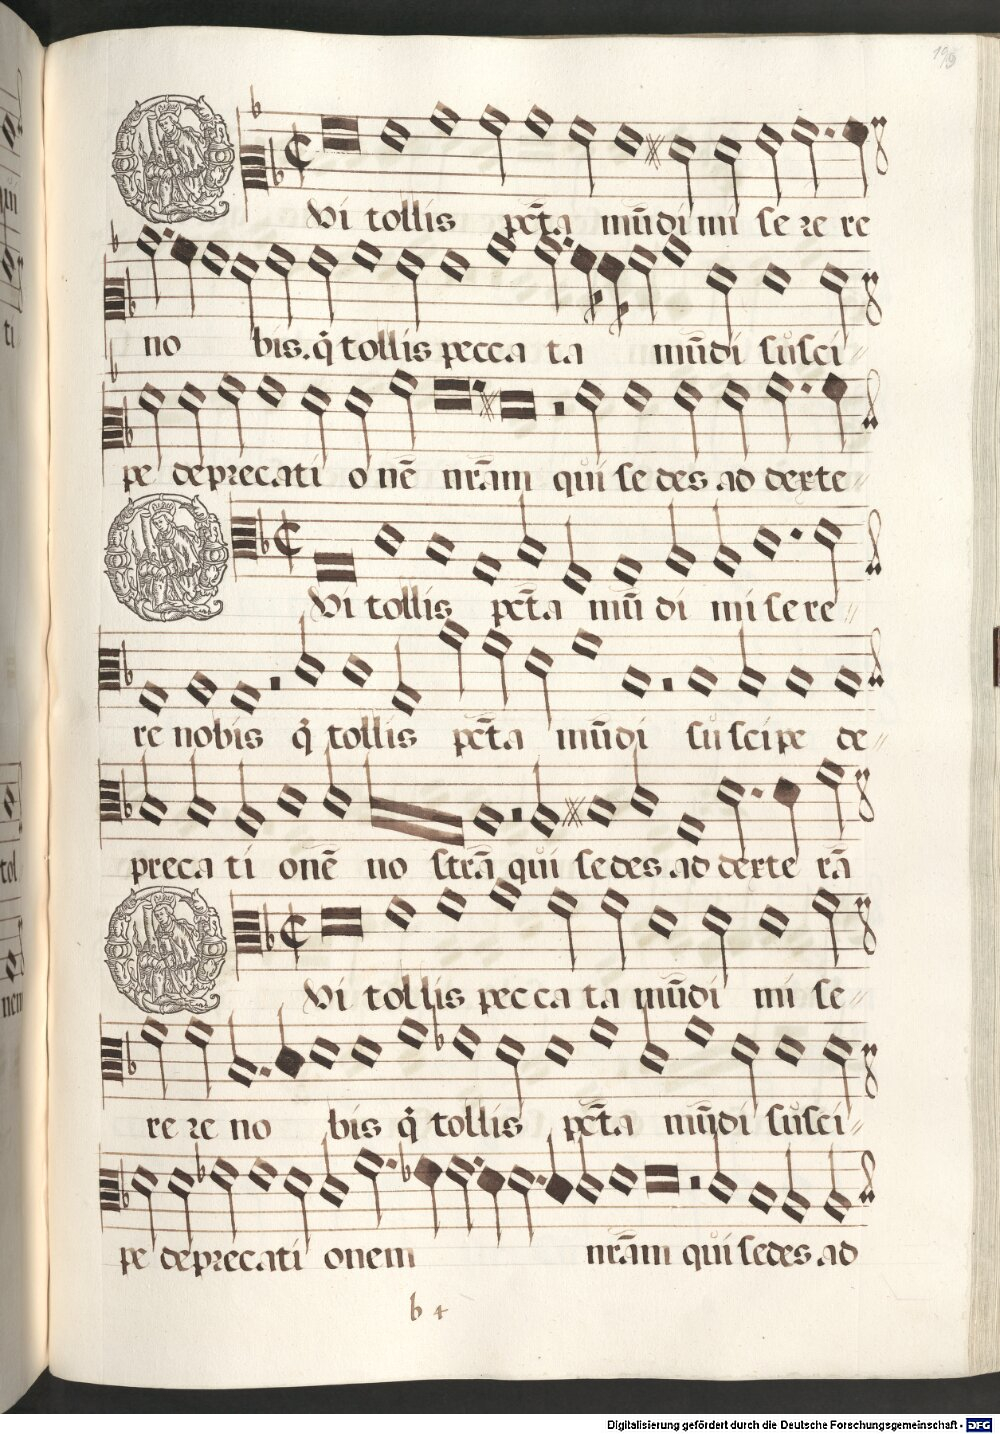 Qvi tollis pc̄ta mūdi mi se re re
no bis. q̄ tollis pecca ta mūdi susci
pe deprecati o nē nr̄am qui se des ad dexte
Qvi tollis pc̄ta mū di mi se re
re nobis q̄ tollis pc̄ta mūdi su scipe de
preca ti onē no strā qui sedes ad dexte rā
Qvi tollis pecca ta mūdi mi se
re re no bis q̄ tollis pc̄ta mūdi susci
pe deprecati onem nr̄am qui sedes ad
b 4
Digitalisierung gefördert durch die Deutsche Forschungsgemeinschaft - DFG